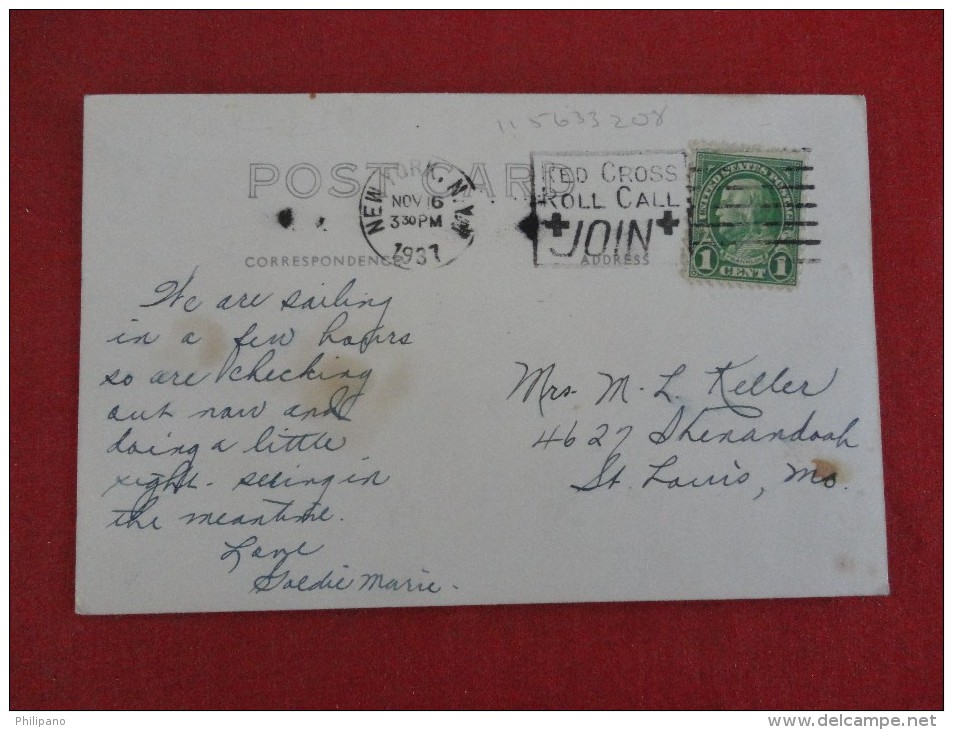 115633208
POST CARD
NEW YORK, N.Y.
NOV 16
3 30 PM
1937
RED CROSS
ROLL CALL
JOIN
UNITED STATES POSTAGE
1 CENT 1
CORRESPONDENCE
ADDRESS
We are sailing
in a few hours
so are checking
out now and
doing a little
sight-seeing in
the meantime.
Love
Goldie Marie.
Mrs. M. L. Keller
4627 Shenandoah
St. Louis, Mo.
Philipano
www.delcampe.net